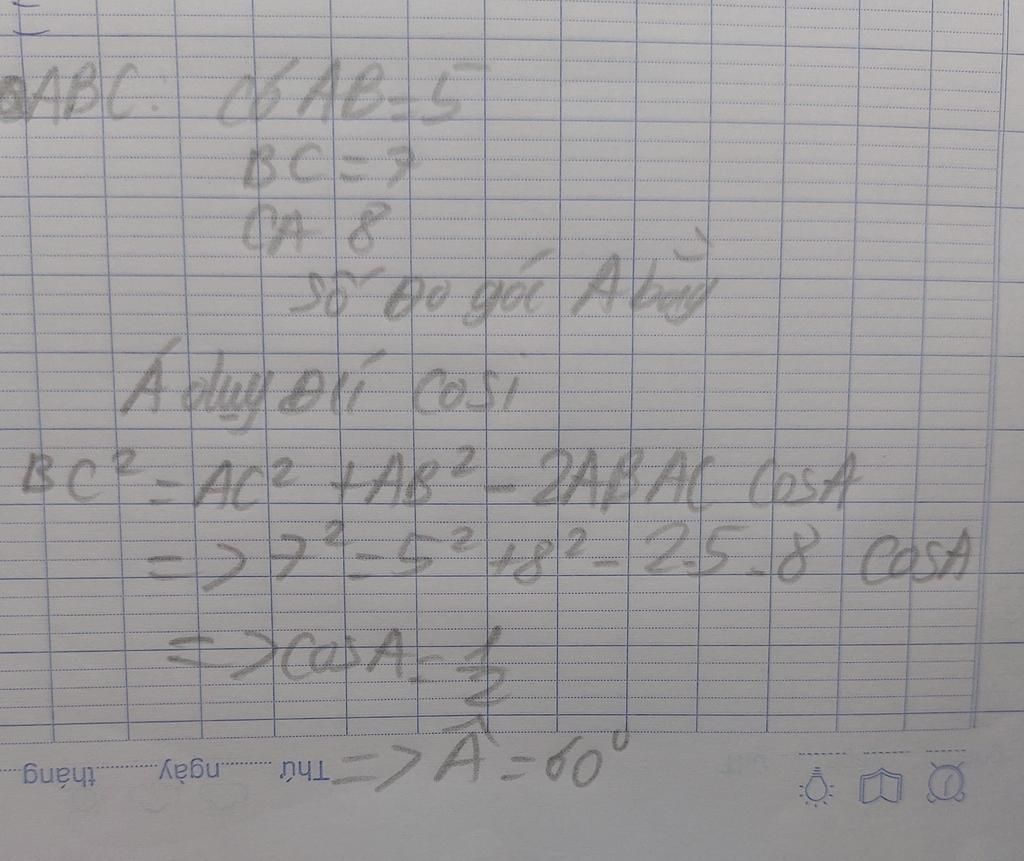 ABC: có AB = 5
BC = 7
CA 8
Số Đo góc A bằng
Á dụng Đlí cosi
BC² = AC² + AB² - 2ABAC CosA
=> 7² = 5² + 8² - 2.5.8 CosA
=> CosA = 1/2
=> Â = 60⁰
Thứ ngày tháng